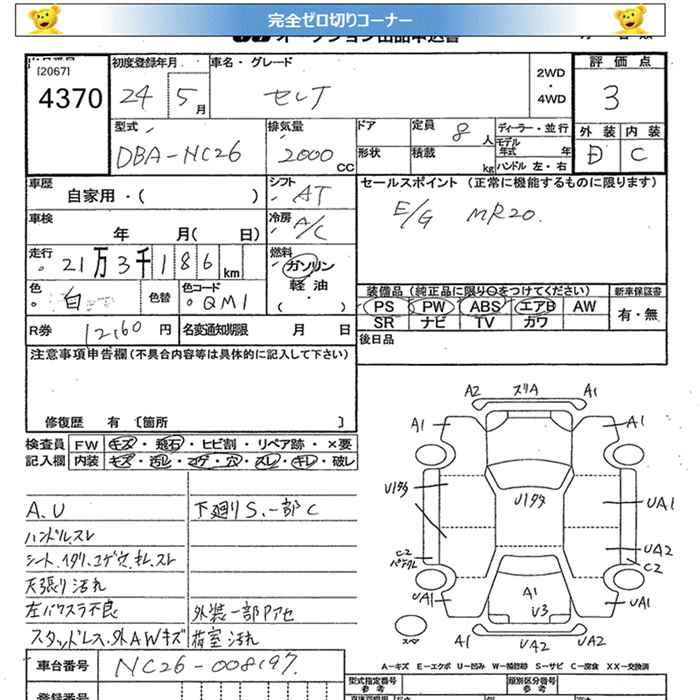 完全ゼロ切りコーナー
オークション出品申込書
[2067]
4370
初度登録年月 24 5月
車名・グレード セレナ
2WD ・ 4WD
評価点 3
外装 内装
D C
型式 DBA-NC26
排気量 2000 CC
ドア 定員 8人
形状 積載 kg
ディーラー・並行
モデル年式 年
ハンドル 左・右
車歴 自家用・( )
シフト AT
セールスポイント (正常に機能するものに限ります)
E/G MR20.
車検 年 月( 日)
冷房 A/C
走行 21万3千186km
燃料 ガソリン 軽油 ・ ( )
色 白 色替
色コード QM1
装備品 (純正品に限り○をつけてください)
新車保証書
PS PW ABS エアB AW
有・無
SR ナビ TV カワ
R券 12,160円
名変通知期限 月 日
後日品
注意事項申告欄(不具合内容等は具体的に記入して下さい)
修復歴 有 [箇所 ]
検査員記入欄
FW キズ・飛石・ヒビ割・リペア跡・×要
内装 キズ・汚レ・コゲ・穴・スレ・キレ・破レ
A.U 下廻りS.一部C
ハンドルスレ
シート.イタリ.コゲ穴.キレ.スレ
天張り汚れ
左パワスラ不良 外装一部Pアセ
スタッドレス.外AWキズ 荷室汚れ
A2 ズリA A1
A1 A1
U1タタ U1タタ UA1
C2 UA2
C2
UA1 A1 UA1
U3
スペ A1 UA2 UA2
A-キズ E-エクボ U-凹み W-補修跡 S-サビ C-腐食 XX-交換済
車台番号 NC26-008197.
型式指定番号 参考
類別区分番号 参考
登録番号